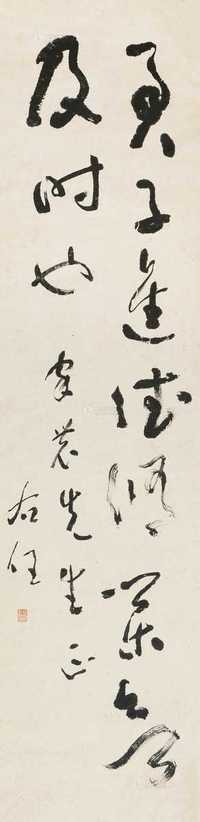 君子進德脩業欲
及時也 農先生正
右任